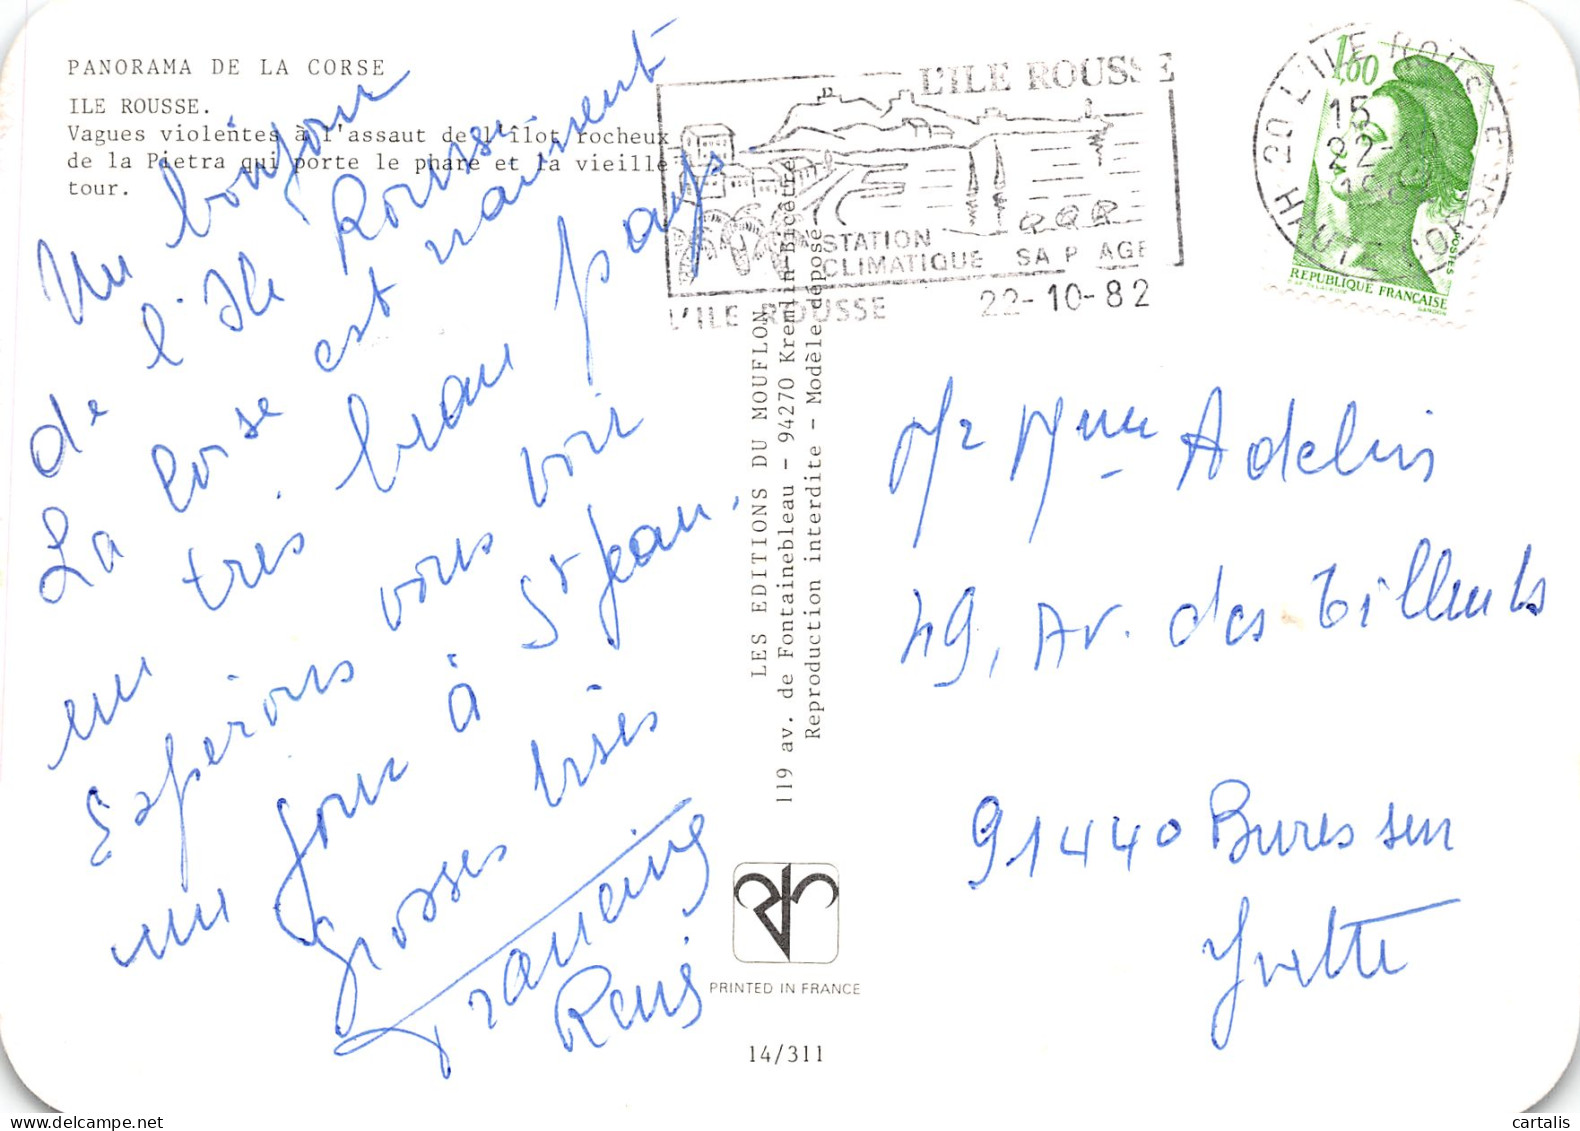 PANORAMA DE LA CORSE
ILE ROUSSE.
Vagues violentes à l'assaut de l'îlot rocheux
de la Pietra qui porte le phare et la vieille
tour.
Un bonjour
de l'Ile Rousse
La Corse est vraiment
un très beau pays
Espérons vous voir
un jour à St Jean.
Grosses bises
Francine
René
L'ILE ROUSSE
STATION
CLIMATIQUE SA P AGE
L'ILE ROUSSE 22-10-82
20 L'ILE ROUSSE
15 H
22-10
1,60
POSTES
REPUBLIQUE FRANÇAISE
GANDON
LES EDITIONS DU MOUFLON
119 av. de Fontainebleau - 94270 Kremlin-Bicêtre
Reproduction interdite - Modèle déposé
Mr Mme Adelin
49, Av. des Tilleuls
91440 Bures sur
Yvette
PRINTED IN FRANCE
14/311
cartalis